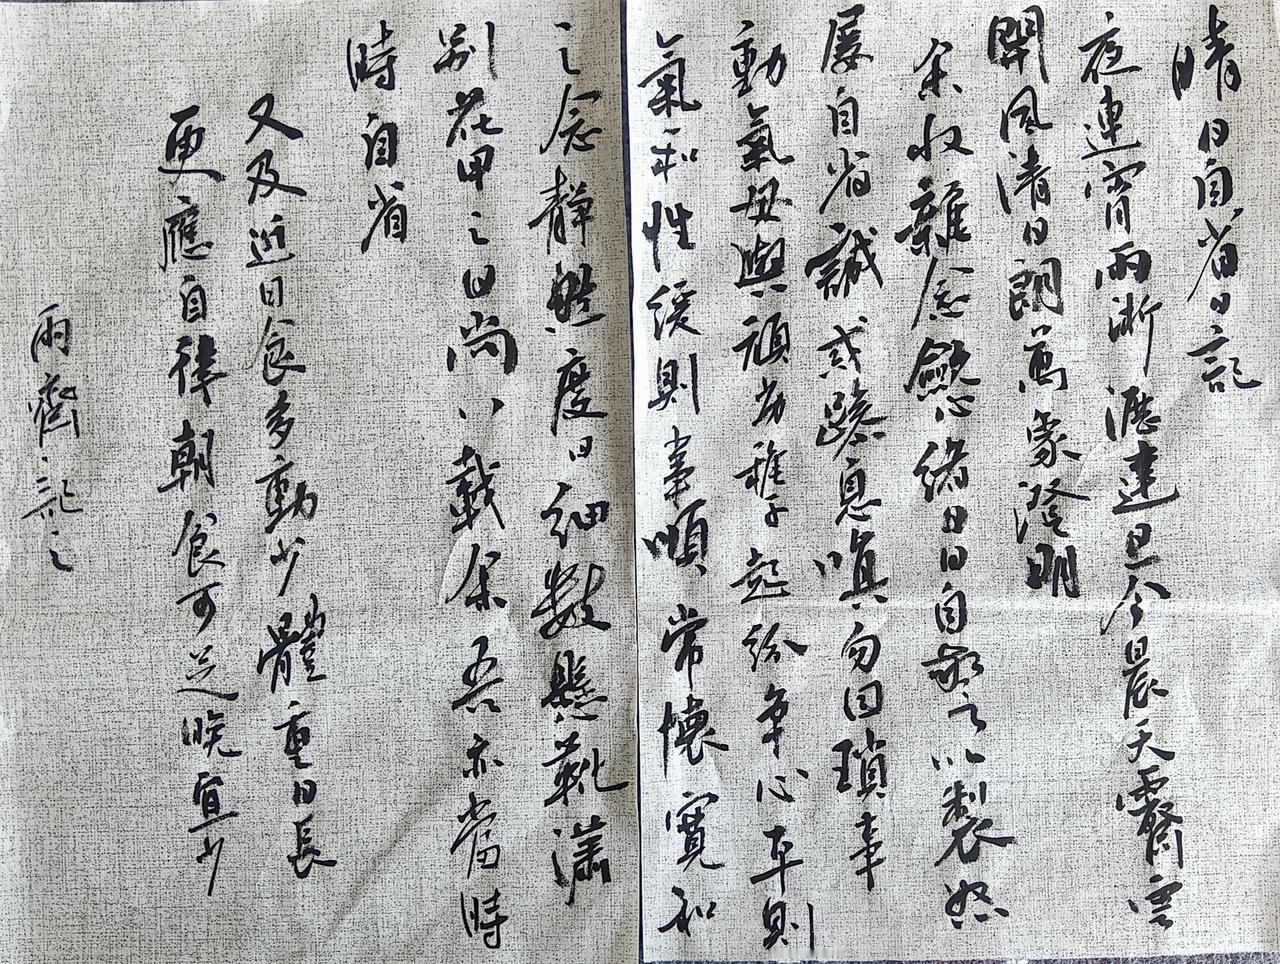 晴日自省日記
夜連宵雨淅瀝達旦今晨天霽雲
開風清日朗萬象澄明
余收雜念斂心緒日日自敬之以製怒
屡自省誡戒躁息嗔勿因瑣事
動氣毋與頑劣稚子起紛争心平則
氣和性缓則事順常懷寬和
之念靜默度日细數懸瀟
别花甲之日尚八載余吾亦當時
時自省
又及近日食多動少體重日長
更應自律朝食可足晚宜少
雨齋記之